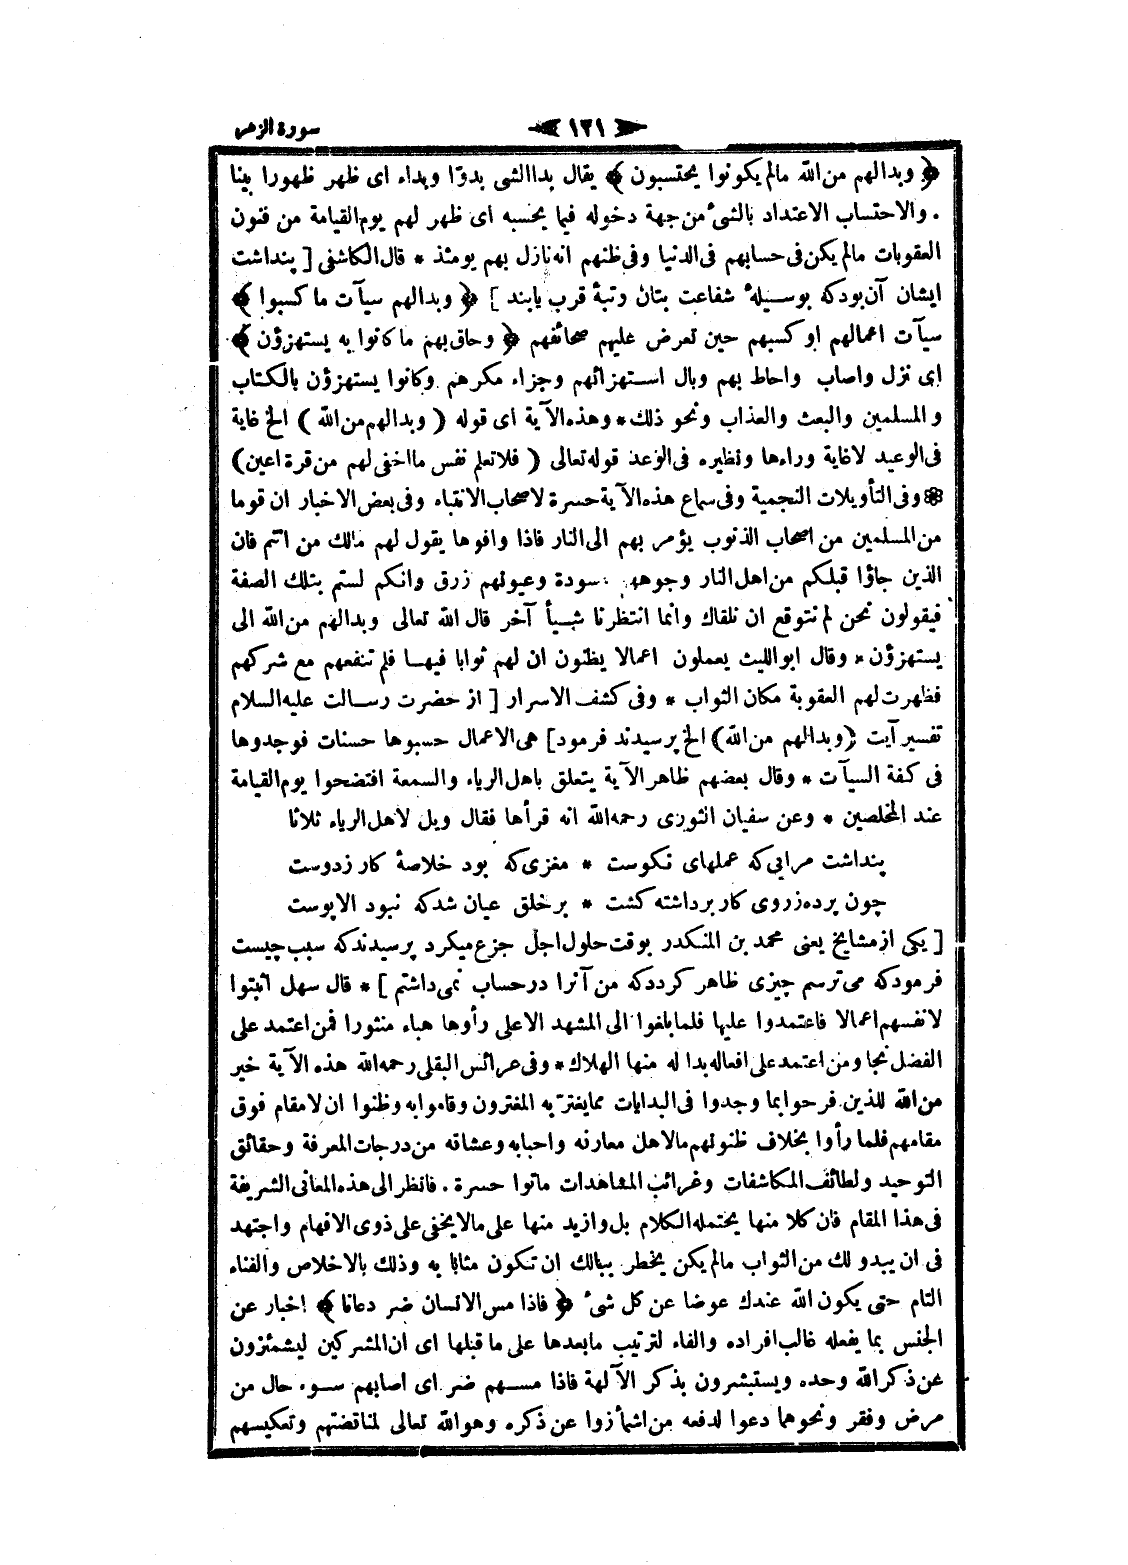 سورة الزمر
١٢١
﴿ وبدالهم من الله مالم يكونوا يحتسبون ﴾ يقال بداالشى بدوّا وبداء اى ظهر ظهورا بينا
. والاحتساب الاعتداد بالشىء من جهة دخوله فيما يحسبه اى ظهر لهم يوم القيامة من فنون
العقوبات مالم يكن فى حسابهم فى الدنيا وفى ظنهم انه نازل بهم يومئذ * قال الكاشفى [ پنداشت
ايشان آن بودكه بوسيلهٔ شفاعت بتان رتبهٔ قرب يابند ] ﴿ وبدالهم سيآت ما كسبوا ﴾
سيآت اعمالهم او كسبهم حين تعرض عليهم صحائفهم ﴿ وحاق بهم ما كانوا به يستهزؤن ﴾
اى نزل واصاب واحاط بهم وبال استهزائهم وجزاء مكرهم وكانوا يستهزؤن بالكتاب
والمسلمين والبعث والعذاب ونحو ذلك * وهذه الآية اى قوله ( وبدالهم من الله ) الخ غاية
فى الوعيد لاغاية وراءها ونظيره فى الوعد قوله تعالى ( فلاتعلم نفس مااخفى لهم من قرة اعين)
❁ وفى التأويلات النجمية وفى سماع هذه الآية حسرة لاصحاب الانتباه وفى بعض الاخبار ان قوما
من المسلمين من اصحاب الذنوب يؤمر بهم الى النار فاذا وافوها يقول لهم مالك من انتم فان
الذين جاؤا قبلكم من اهل النار وجوههم مسودة وعيونهم زرق وانكم لستم بتلك الصفة
فيقولون نحن لم نتوقع ان نلقاك وانما انتظرنا شيأ آخر قال الله تعالى وبدالهم من الله الى
يستهزؤن * وقال ابوالليث يعملون اعمالا يظنون ان لهم ثوابا فيها فلم تنفعهم مع شركهم
فظهرت لهم العقوبة مكان الثواب * وفى كشف الاسرار [ از حضرت رسالت عليه السلام
تفسير آيت (وبدالهم من الله) الخ پرسيدند فرمود] هى الاعمال حسبوها حسنات فوجدوها
فى كفة السيآت * وقال بعضهم ظاهر الآية يتعلق باهل الرياء والسمعة افتضحوا يوم القيامة
عند المخلصين * وعن سفيان الثورى رحمه الله انه قرأها فقال ويل لاهل الرياء ثلاثا
پنداشت مرايى كه عملهاى نكوست * مغزى كه بود خلاصهٔ كار زدوست
چون پرده زروى كار برداشته كشت * برخلق عيان شدكه نبود الاپوست
[ يكى از مشايخ يعنى محمد بن المنكدر بوقت حلول اجل جزع ميكرد پرسيدندكه سبب چيست
فرمودكه مى ترسم چيزى ظاهر كرددكه من آنرا درحساب نمى داشتم ] * قال سهل اثبتوا
لانفسهم اعمالا فاعتمدوا عليها فلمابلغوا الى المشهد الاعلى رأوها هباء منثورا فمن اعتمد على
الفضل نجا ومن اعتمد على افعاله بدا له منها الهلاك * وفى عرائس البقلى رحمه الله هذه الآية خبر
من الله للذين فرحوا بما وجدوا فى البدايات مما يغترّ به المغترون وقاموا به وظنوا ان لامقام فوق
مقامهم فلما رأوا بخلاف ظنونهم مالاهل معارفه واحبابه وعشاقه من درجات المعرفة وحقائق
التوحيد ولطائف المكاشفات وغرائب المشاهدات ماتوا حسرة . فانظر الى هذه المعانى الشريفة
فى هذا المقام فان كلا منها يحتمله الكلام بل وازيد منها على مالايخفى على ذوى الافهام واجتهد
فى ان يبدو لك من الثواب مالم يكن يخطر ببالك ان تكون مثابا به وذلك بالاخلاص والفناء
التام حتى يكون الله عندك عوضا عن كل شىء ﴿ فاذا مس الانسان ضر دعانا ﴾ اخبار عن
الجنس بما يفعله غالب افراده والفاء لترتيب مابعدها على ما قبلها اى ان المشركين ليشمئزون
عن ذكر الله وحده ويستبشرون بذكر الآلهة فاذا مسهم ضر اى اصابهم سوء حال من
مرض وفقر ونحوهما دعوا لدفعه من اشمأزوا عن ذكره وهو الله تعالى لمناقضتهم وتعكيسهم